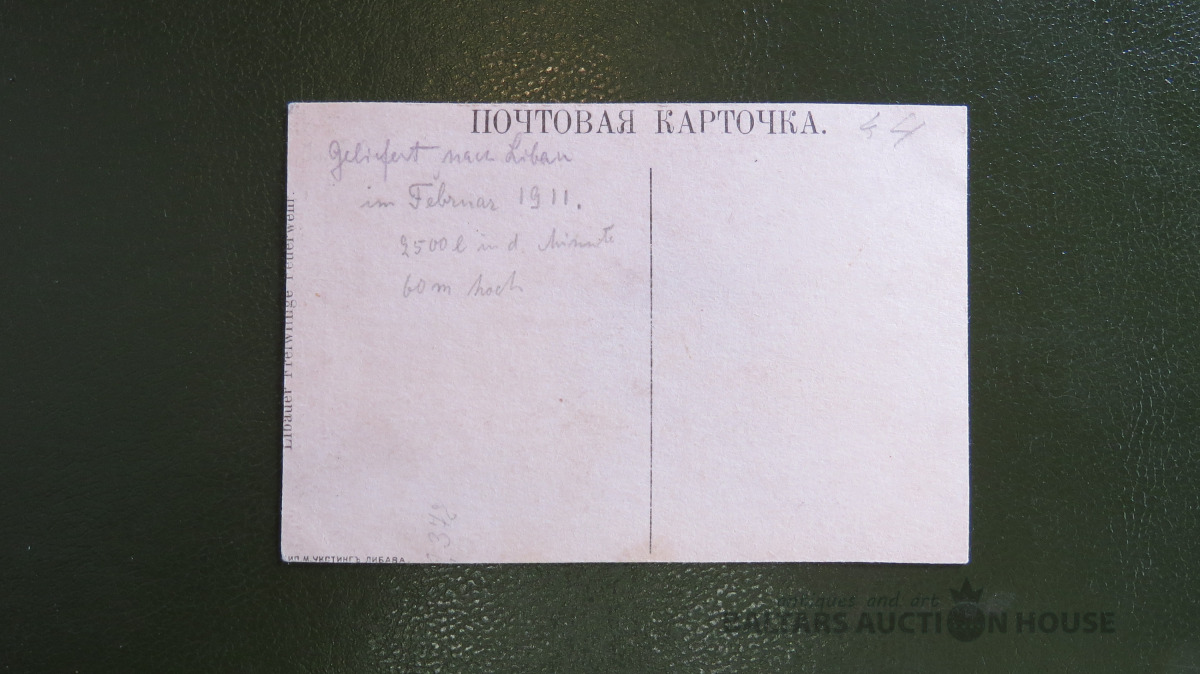 ПОЧТОВАЯ КАРТОЧКА.
Geliefert nach Libau
im Februar 1911.
2500 l in d. Minute
60 m hoch
Libauer Freiwillige Feuerwehr
М. УКСТИНГЪ ЛИБАВА
342
antiques and art
BALTARS AUCTION HOUSE